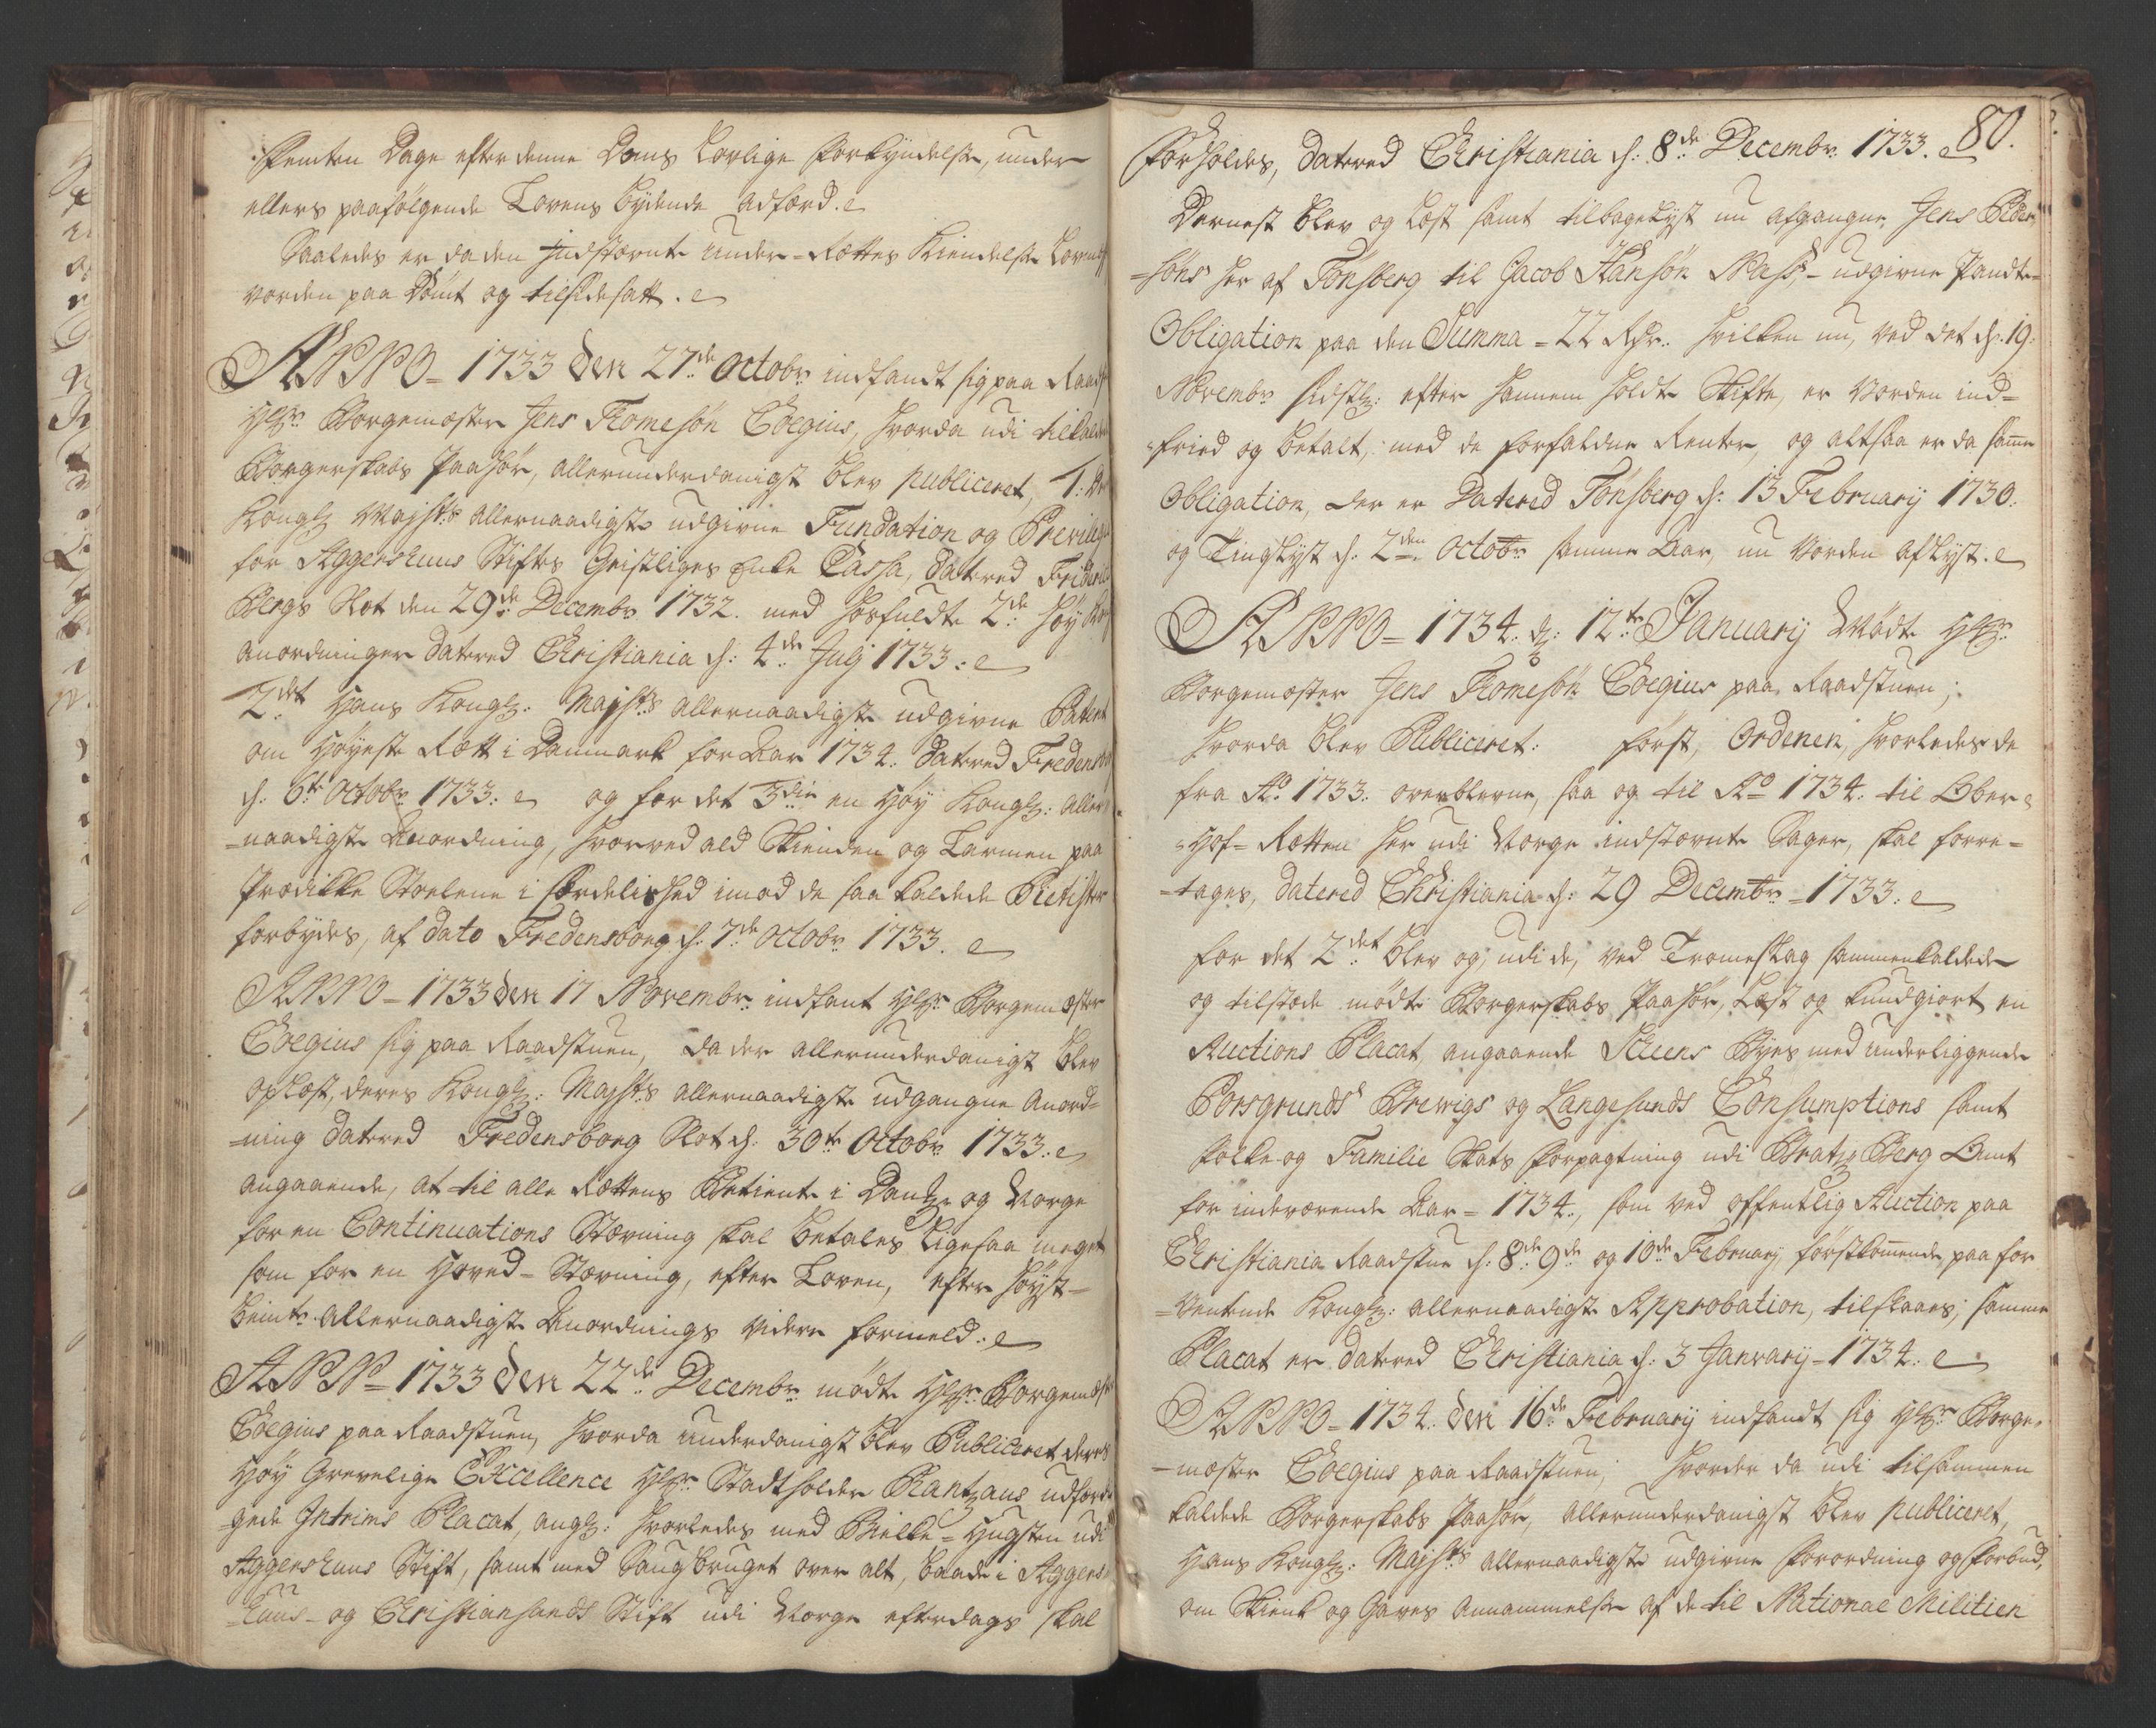 Femten Dage efter denne Doms Lovlige forkyndelse, under
ellers paafølgende Lovens lydende adfærd.
Saaledes er da den Indstævnte Under-Rættes Kiendelse
vorden paa Dømt og tilsidesatt.
ANNO 1733 den 27de Octobr indfandt sig paa
Hr Borgemæster Jens Tromesøn Coegius, hvorda udi
Borgerskabs Paahør, allerunderdanigst blev publiceret, 1:
Kongl Majsts allernaadigste udgivne Fundation og
for Aggershuus Stiftes Geistliges Enke Cassa, datered
Bergs Slot den 29de Decembr 1732. med hosfuldte 2de Høy
anordninger datered Christiania d: 4de Julj 1733:
2det Hans Kongl: Majsts allernaadigste udgivne Patent
om Høyeste Rætt i Danmark for Aar 1734. datered
d: 6te Octobr 1733: og for det 3die en Høy Kongl: aller
=naadigste Anordning, hvorved ald Skienden og Larmen paa
Prædikke Stoelene i særdelished imod de saa kaldede Pietister
forbydes, af dato Fredensborg d: 7de Octobr 1733.
ANNO 1733 den 17 Novembr indfant Hr Borgemæster
Coegius sig paa Raadstuen, da der allerunderdanigst blev
oplæst, deres Kongl: Majsts allernaadigste udgangne Anord=
=ning datered Fredensborg Slot d: 30te Octobr 1733:
angaaende, at til alle Rættens Betiente i Danl og Norge
for en Continuations Stævning skal betales ligesaa meget
som for en Hoved=Stævning, efter Loven, efter høyst=
bemte allernaadigste Anordnings videre formeld:
ANNO 1733 den 22de Decembr mødte Hr
Coegius paa Raadstuen, hvorda underdanigst blev Publiceret deres
Høy Grevelige Excellence Hr Stadtholder Rantzaus
gede Intrims Placat, angl: hvorledes med Bielke=Hugsten udi
Aggershuus Stift, samt med Saugbruget over alt, baade i Aggers
=huus- og Christiansands Stift udi Norge efterdags skal
80.
forholdes, datered Christiania d: 8de Decembr 1733.
Dernest blev og læst samt tilbagelyst nu afgangne Jens
=søns her af Tønsberg til Jacob Hansøn udgivne Pandte=
Obligation paa den Summa =22 Rdr. hvilken nu, ved det d: 19:
Novembr sidstl: efter hannem holdte Skifte, er vorden ind=
=fried og betalt, med de forfaldne Renter, og altsaa er da samme
Obligation, der er Datered Tønsberg d: 13 February 1730.
og Tinglyst d: 2den Octobr samme Aar, nu vorden aflyst.
ANNO 1734. d: 12te January Mødte Hr
Borgemæster Jens Tromesøn Coegius paa Raadstuen;
hvorda blev Publiceret: først, Ordenen, hvorledes de
fra Ao 1733. overblevne, saa og til Ao 1734. til Ober=
=Hof=Rætten her udi Norge indstævnte Sager, skal forre=
=tages, datered Christiania d: 29 Decembr 1733:
for det 2det blev og, udi de, ved Tromeslag sammenkaldede
og tilstæde mødte Borgerskabs Paahør, Læst og kundgiort en
Auctions Placat, angaaende Scheens Byes med underliggende
Porsgrunds Brewigs og Langesunds Consumptions samt
Folke og Familie Skats Forpagtning udi Bratz Berg Amt
for indeværende Aar = 1734., som ved offentlig Auction paa
Christiania Raadstue d: 8de 9de og 10de February førstkommende paa for
=ventende Kongl: allernaadigste Approbation, tilslaaes; samme
Placat er datered Christiania d: 3 January 1734.
ANNO 1734. den 16de February indfandt sig Hr Borge=
=mæster Coegius paa Raadstuen, hvorder da udi tilsammen
kaldede Borgerskabs Paahør, allerunderdanigst blev publiceret,
Hans Kongl: Majsts allernaadigste udgivne Forordning og Forbud,
om Skienk og Gaves Annammelse af de til National Militien